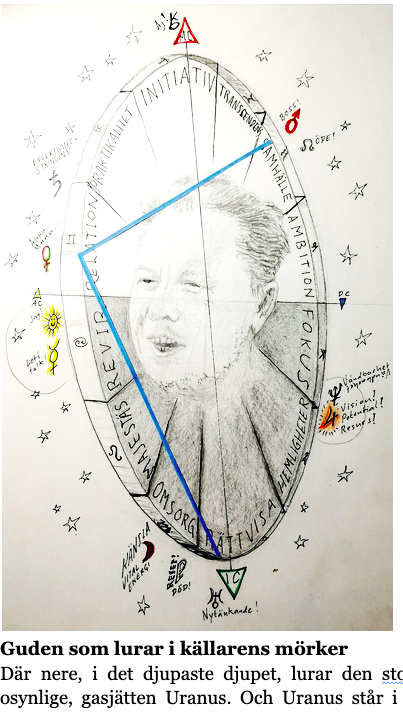 MC
INITIATIV
TRANSCENDENS
PRAKTIKALITET
BOSS!
ÖDET
SAMHÄLLE
RELATION
AMBITION
AC
DC
Jag
FOKUS
REVIR
Vision?
Potential?
Resurs?
HEMLIGHETER
MAJESTÄS
OMSORG
RÄTTVISA
KÄNSLA
VITAL
ENERGI
DÖD!
IC
Nytänkande!
Guden som lurar i källarens mörker
Där nere, i det djupaste djupet, lurar den
osynlige, gasjätten Uranus. Och Uranus står i